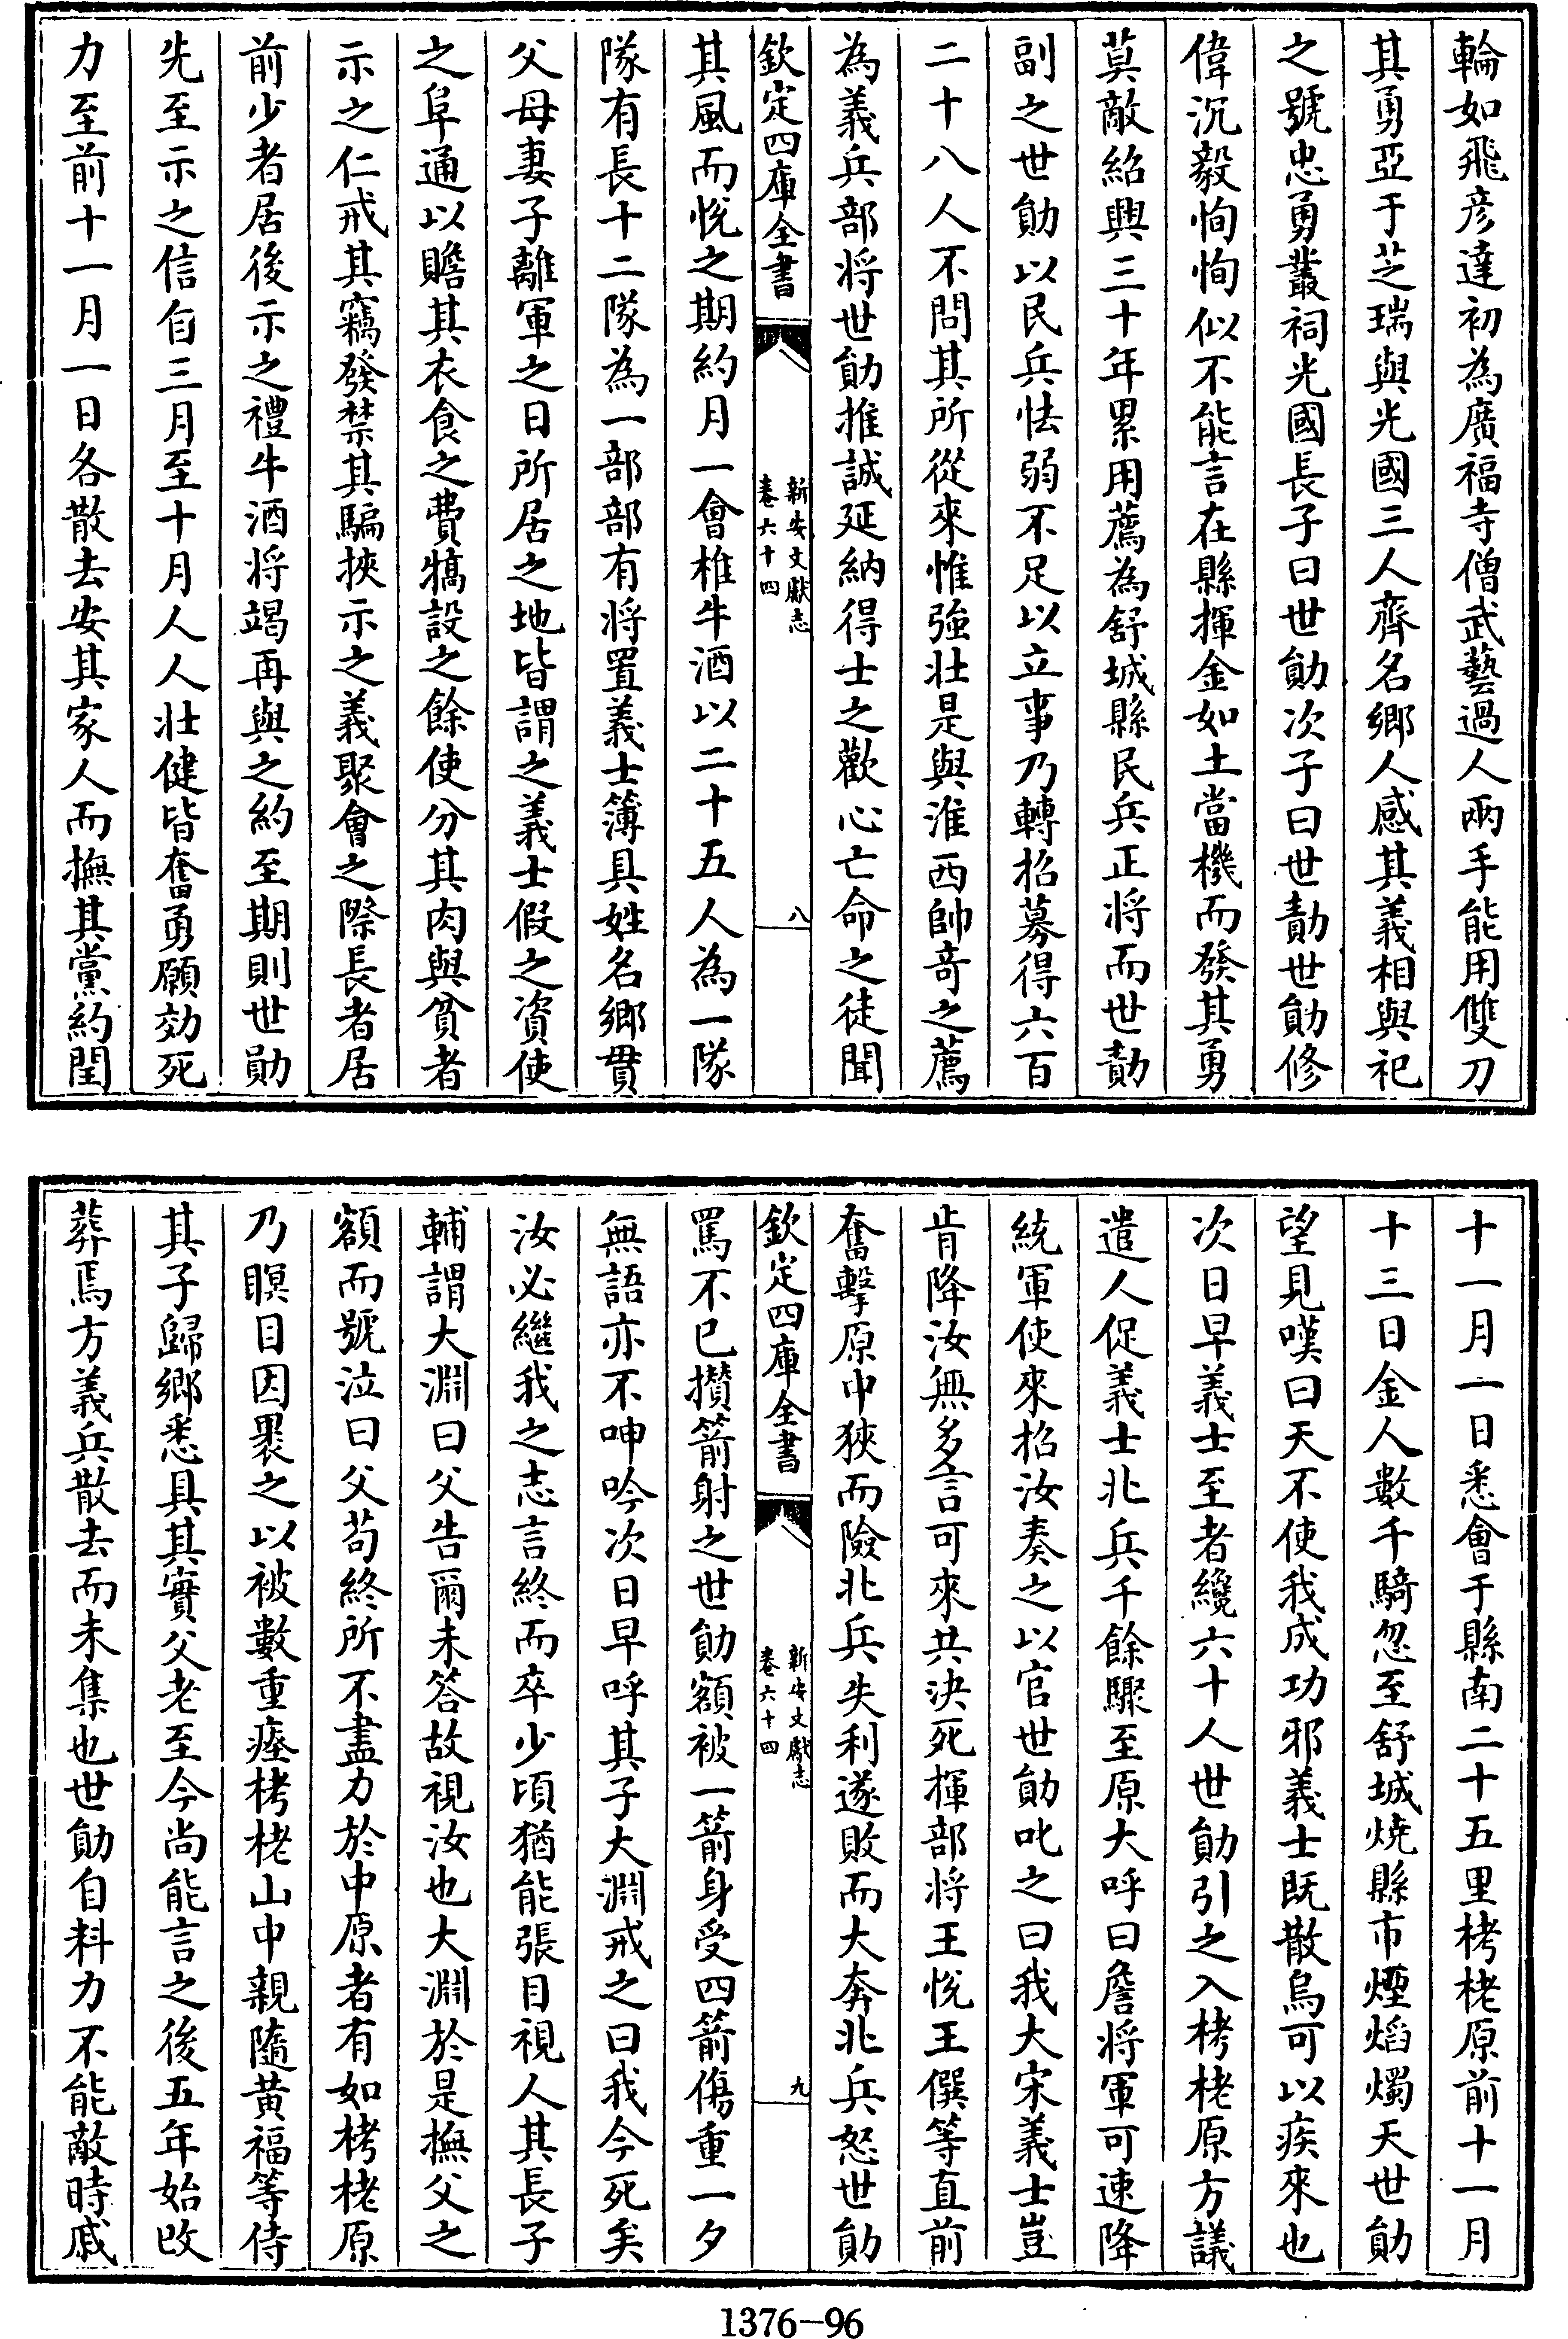 輪如飛彦達初為廣福寺僧武藝過人兩手能用雙刀
其勇亞于芝瑞與光國三人齊名鄉人感其義相與祀
之號忠勇叢祠光國長子曰世勛次子曰世勣世勛修
偉沉毅恂恂似不能言在縣揮金如土當機而發其勇
莫敵紹興三十年累用薦為舒城縣民兵正將而世勣
副之世勛以民兵怯弱不足以立事乃轉招募得六百
二十八人不問其所從來惟強壯是與淮西帥奇之薦
為義兵部將世勛推誠延納得士之歡心亡命之徒聞
欽定四庫全書
新安文獻志
卷六十四
八
其風而悅之期約月一會椎牛酒以二十五人為一隊
隊有長十二隊為一部部有將置義士簿具姓名鄉貫
父母妻子離軍之日所居之地皆謂之義士假之資使
之阜通以贍其衣食之費犒設之餘使分其肉與貧者
示之仁戒其竊發禁其騙挾示之義聚會之際長者居
前少者居後示之禮牛酒將竭再與之約至期則世勛
先至示之信自三月至十月人人壯健皆奮勇願効死
力至前十一月一日各散去安其家人而撫其黨約閏
十一月一日悉會于縣南二十五里栲栳原前十一月
十三日金人數千騎忽至舒城燒縣市煙焰燭天世勛
望見嘆曰天不使我成功邪義士既散烏可以疾來也
次日早義士至者纔六十人世勛引之入栲栳原方議
遣人促義士北兵千餘驟至原大呼曰詹將軍可速降
統軍使來招汝奏之以官世勛叱之曰我大宋義士豈
肯降汝無多言可來共決死揮部將王悅王僎等直前
奮擊原中狹而險北兵失利遂敗而大奔北兵怒世勛
欽定四庫全書
新安文獻志
卷六十四
九
罵不已攢箭射之世勛額被一箭身受四箭傷重一夕
無語亦不呻吟次日早呼其子大淵戒之曰我今死矣
汝必繼我之志言終而卒少頃猶能張目視人其長子
輔謂大淵曰父告爾未答故視汝也大淵於是撫父之
額而號泣曰父苟終所不盡力於中原者有如栲栳原
乃瞑目因裹之以被數重瘞栲栳山中親隨黃福等侍
其子歸鄉悉具其實父老至今尚能言之後五年始改
葬焉方義兵散去而未集也世勛自料力不能敵時戚
1376-96